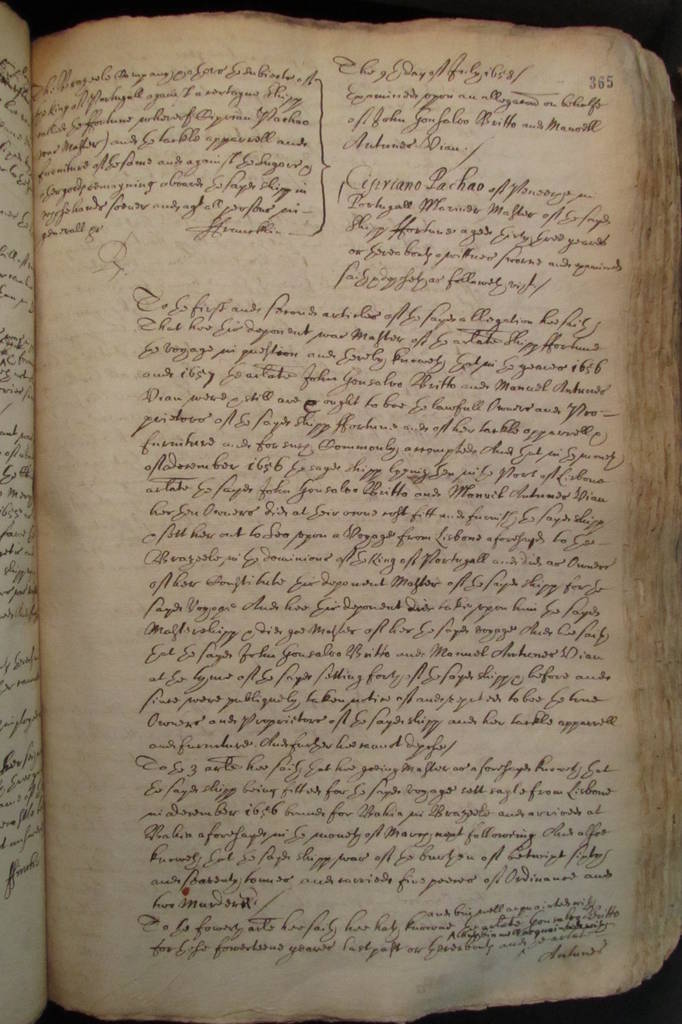 365
The Brazeele Company & others the subiects of
the king of Portugall against a certayne shipp
called the ffortune whereof Ciprian Pachao
was Master) and the tackle apparrell and
furniture of the same and against the sugars &
other goods remayning aboard the sayd shipp in
whose hands soever and agt all persons in
generall &c
ffrancklin
The 9th day of July 1658/
Examined upon an allegation on behalfe
of John Gonsalvo Britto and Manoell
Antunes Vian./
Cipriano Pachao of
Portugall Mariner Master of the sayd
shipp ffortune aged thirty three yeares
or thereabouts a wittnes sworne and examined
saith & deposeth as followeth vizt/
To the first and second articles of the sayd allegation hee saith
That hee this deponent was Master of the arlate shipp ffortune
the voyage in question and thereby knoweth that in the yeares 1656
and 1657 the arlate John Gonsalvo Britto and Manuel Antunes
Vian were & still are & ought to bee the lawfull Owners and Pro-
prietors of the sayd shipp ffortune and of her tackle apparrell &
furniture and for such Commonly accompted And that in the moneth
of december 1656 the sayd shipp being then in the Port of Lisbone
arlate the sayd John Gonsalvo Britto and Manuel Antunes Vian
her then Owners did at their owne cost fitt and furnish the sayd shipp
& sett her out to Sea upon a Voyage from Lisbone aforesayd to the
Brazeele in the dominions of the King of Portugall and did as Owners
of her Constitute this deponent Master of the sayd shipp for the
sayd Voyage And hee this deponent did take upon him the sayd
Mastershipp & did goe Master of her the sayd voyage And hee saith
that the sayd John Gonsalvo Britto and Manuel Antunes Vian
at the tyme of the sayd setting forth of the sayd shipp & before and
since were publiquely taken notice of and reputed to bee the true
Owners and Proprietors of the sayd shipp and her tackle apparrell
and furniture And further hee cannot depose/
To the 3 arle hee saith that hee goeing Master as aforesayd knoweth that
the sayd shipp being fitted for the sayd voyage sett sayle from Lisbone
in december 1656 bound for Bahia in Brazeele and arrived at
Bahia aforesayd in the moneth of March next following And also
knoweth that the sayd shipp was of the burthen of betwixt sixty
and seaventy tonnes and carried five peeces of Ordinance and
two Murderers/
To the fowerth arle hee saith hee hath knowne and bin well acquainted with
the arlate Gonsalvo Britto
for these fowerteene yeares last past or thereabouts and the arlate
Antunes